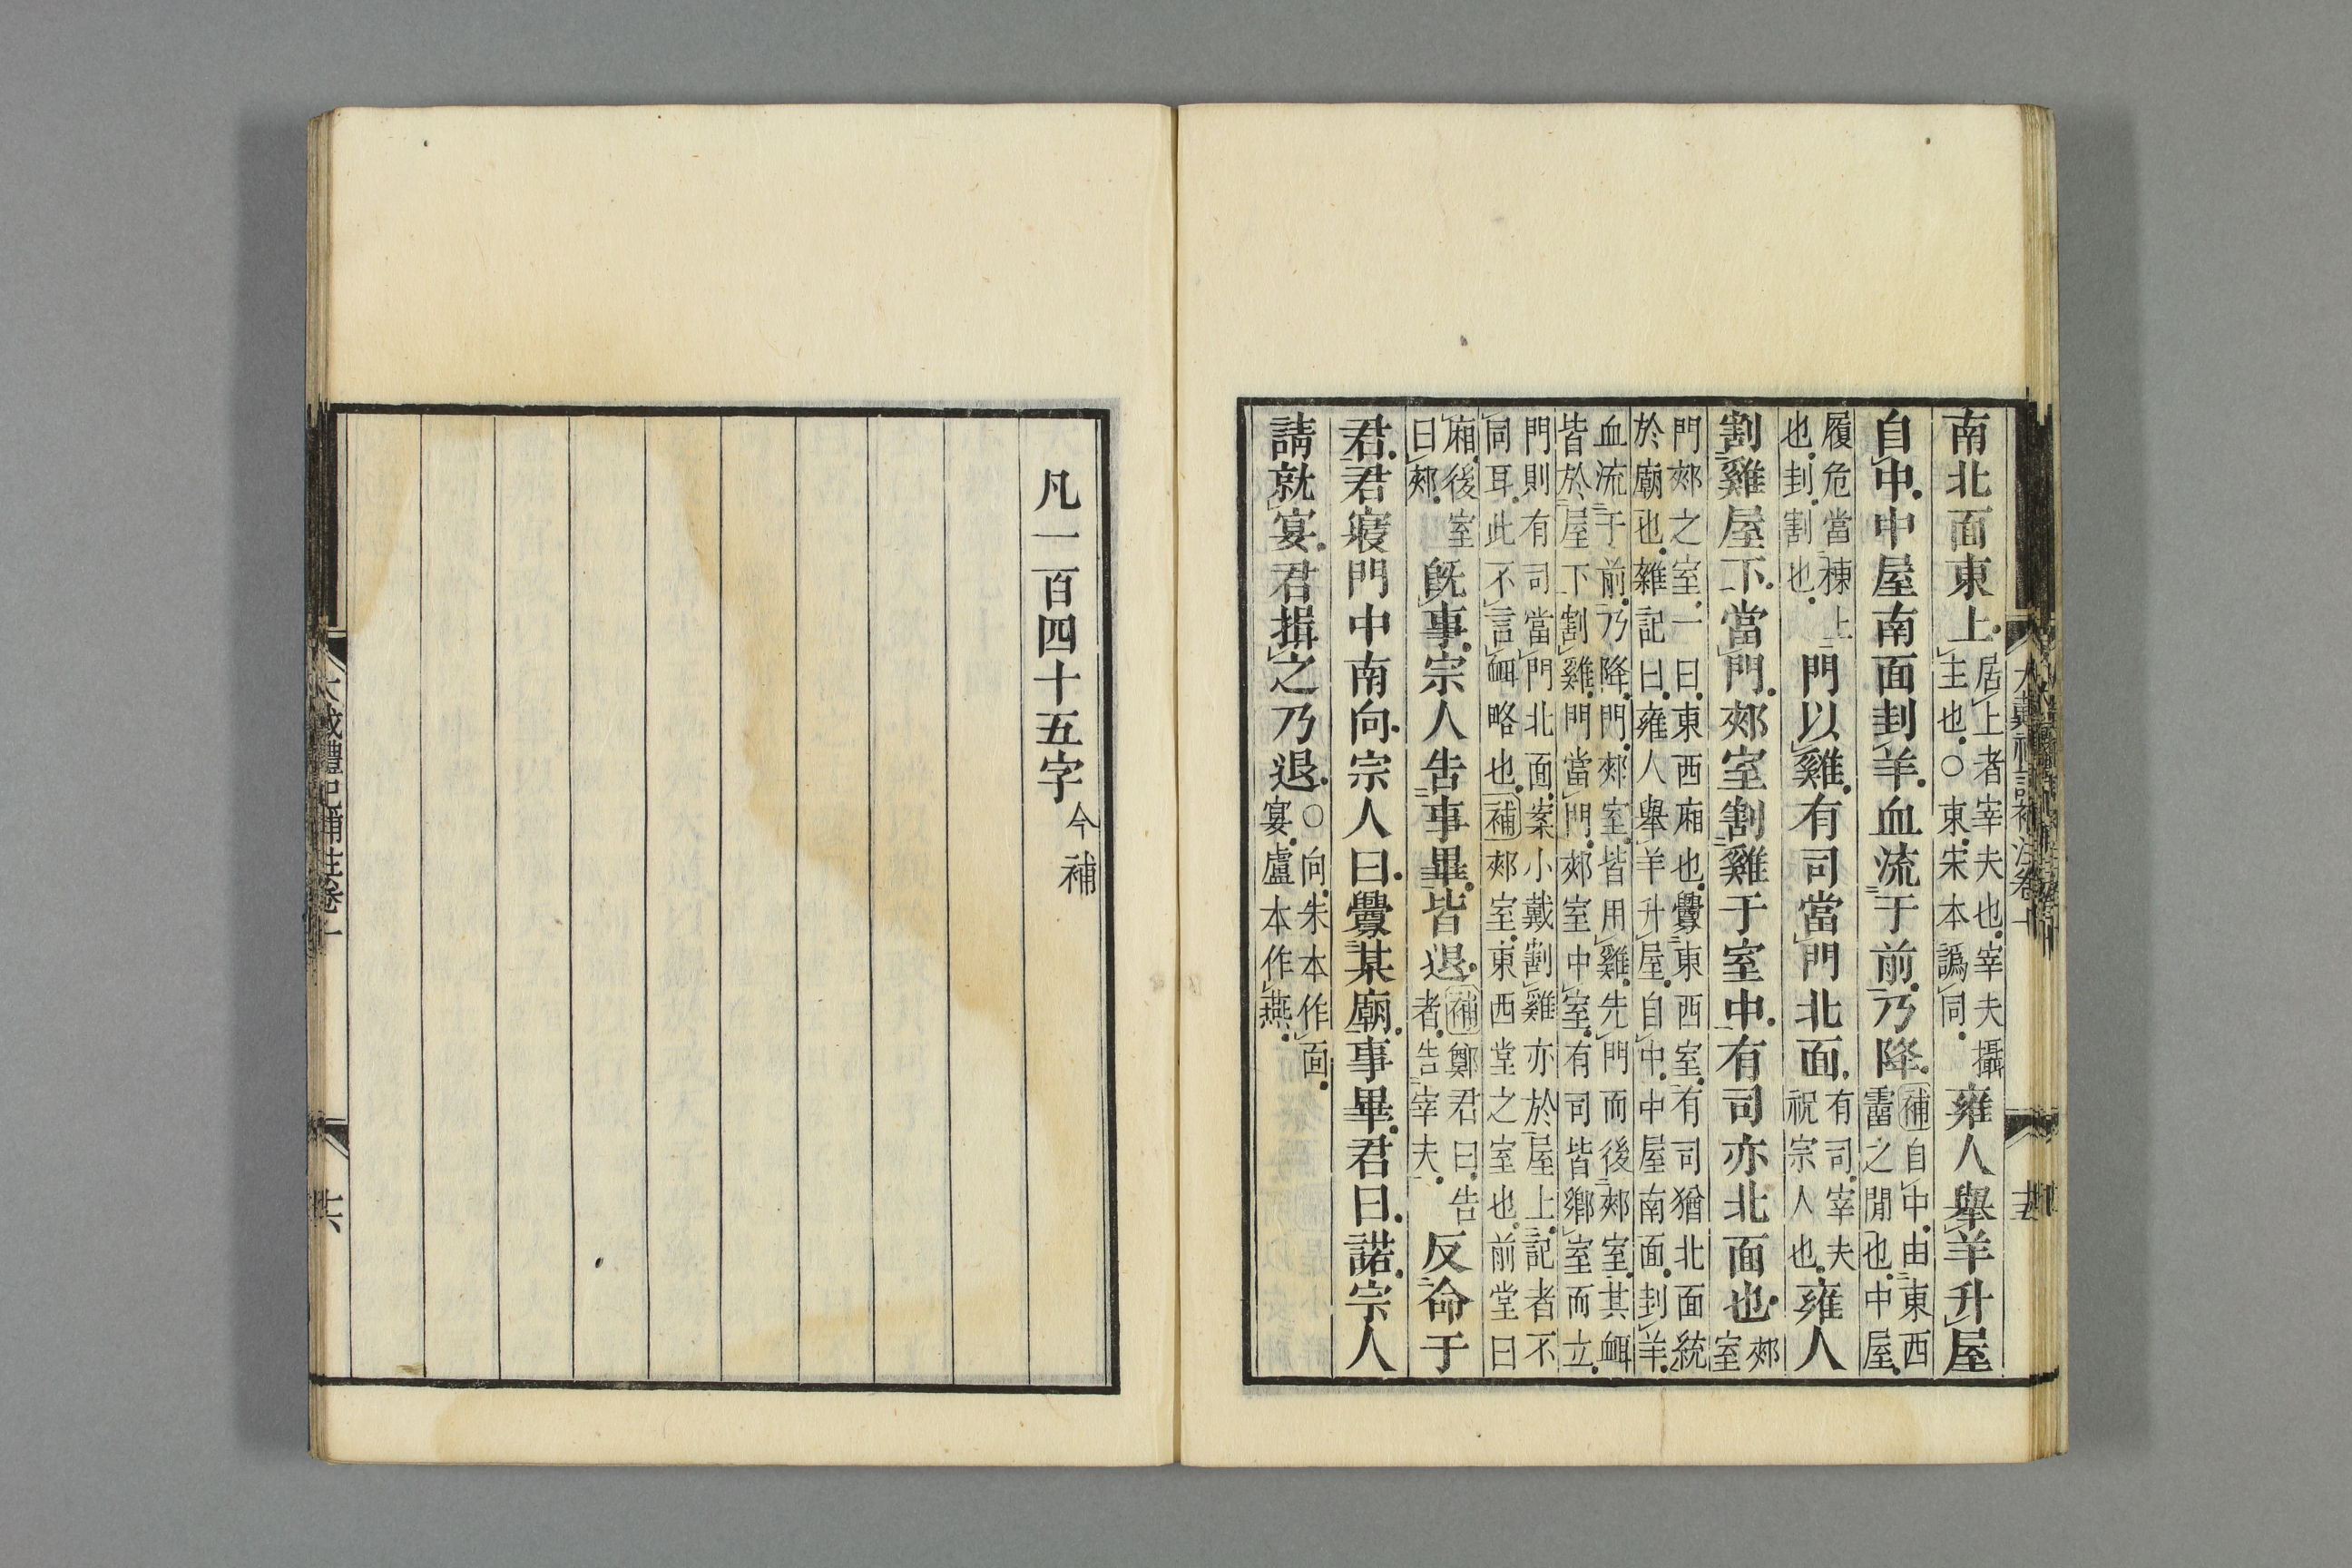 大戴禮記補注卷十 十五
南北面東上居上者宰夫也宰夫攝主也○東宋本譌同雍人舉羊升屋
自中中屋南面刲羊血流于前乃降補自中由東西霤之閒也中屋
履危當棟上也刲割也門以雞有司當門北面有司宰夫祝宗人也雍人
割雞屋下當門郟室割雞于室中有司亦北面也郟室
門郟之室一曰東西廂也釁東西室有司猶北面統
於廟也雜記曰雍人舉羊升屋自中中屋南面刲羊
血流于前乃降門郟室皆用雞先門而後郟室其衈
皆於屋下割雞門當門郟室中室有司皆鄉室而立
門則有司當門北面案小戴割雞亦於屋上記者不
同耳此不言衈略也補郟室東西堂之室也前堂曰
廂後室曰郟既事宗人告事畢皆退補鄭君曰告者告宰夫反命于
君君寑門中南向宗人曰釁某廟事畢君曰諾宗人
請就宴君揖之乃退○向朱本作面宴盧本作燕
凡一百四十五字今補
大戴禮記補註卷十 十六